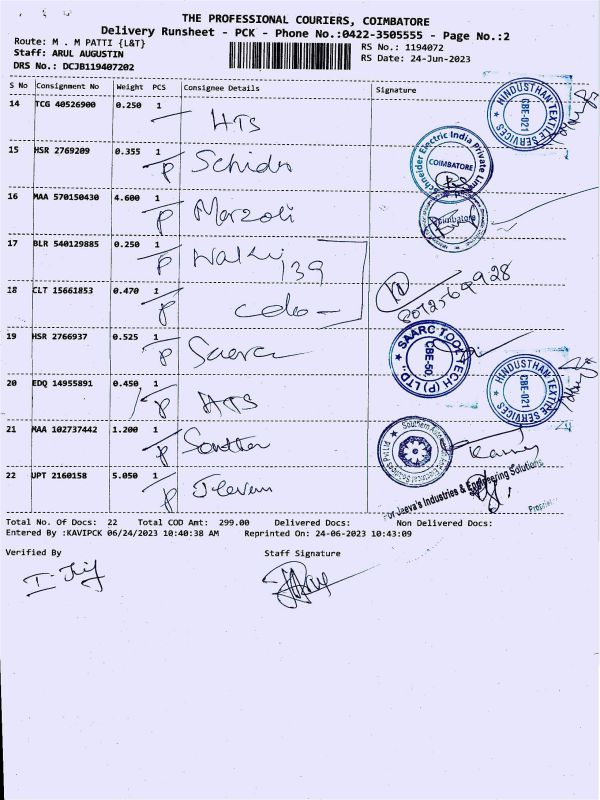 THE PROFESSIONAL COURIERS, COIMBATORE
Delivery Runsheet - PCK - Phone No.:0422-3505555 - Page No.:2
Route: M . M PATTI {L&T}
RS No.: 1194072
Staff: ARUL AUGUSTIN
RS Date: 24-Jun-2023
DRS No.: DCJB119407202
S No Consignment No Weight PCS Consignee Details Signature
14 TCG 40526900 0.250 1 HTS
HINDUSTHAN TEXTILE SERVICES CBE-021
15 HSR 2769209 0.355 1 P
Schneider Electric India Private Limited COIMBATORE
16 MAA 570150430 4.600 1 P Marzoli
Coimbatore
17 BLR 540129885 0.250 1 P 139
18 CLT 15661853 0.470 1 P
19 HSR 2766937 0.525 1 P
SAARC TOOLTECH (P) LTD CBE-50.
20 EDQ 14955891 0.450 1 P HTS
HINDUSTHAN TEXTILE SERVICES CBE-021
21 MAA 102737442 1.200 1 P
22 UPT 2160158 5.050 1 P
For Jaeva's Industries & Engineering Solutions
Total No. Of Docs: 22 Total COD Amt: 299.00 Delivered Docs: Non Delivered Docs:
Entered By :KAVIPCK 06/24/2023 10:40:38 AM Reprinted On: 24-06-2023 10:43:09
Verified By Staff Signature